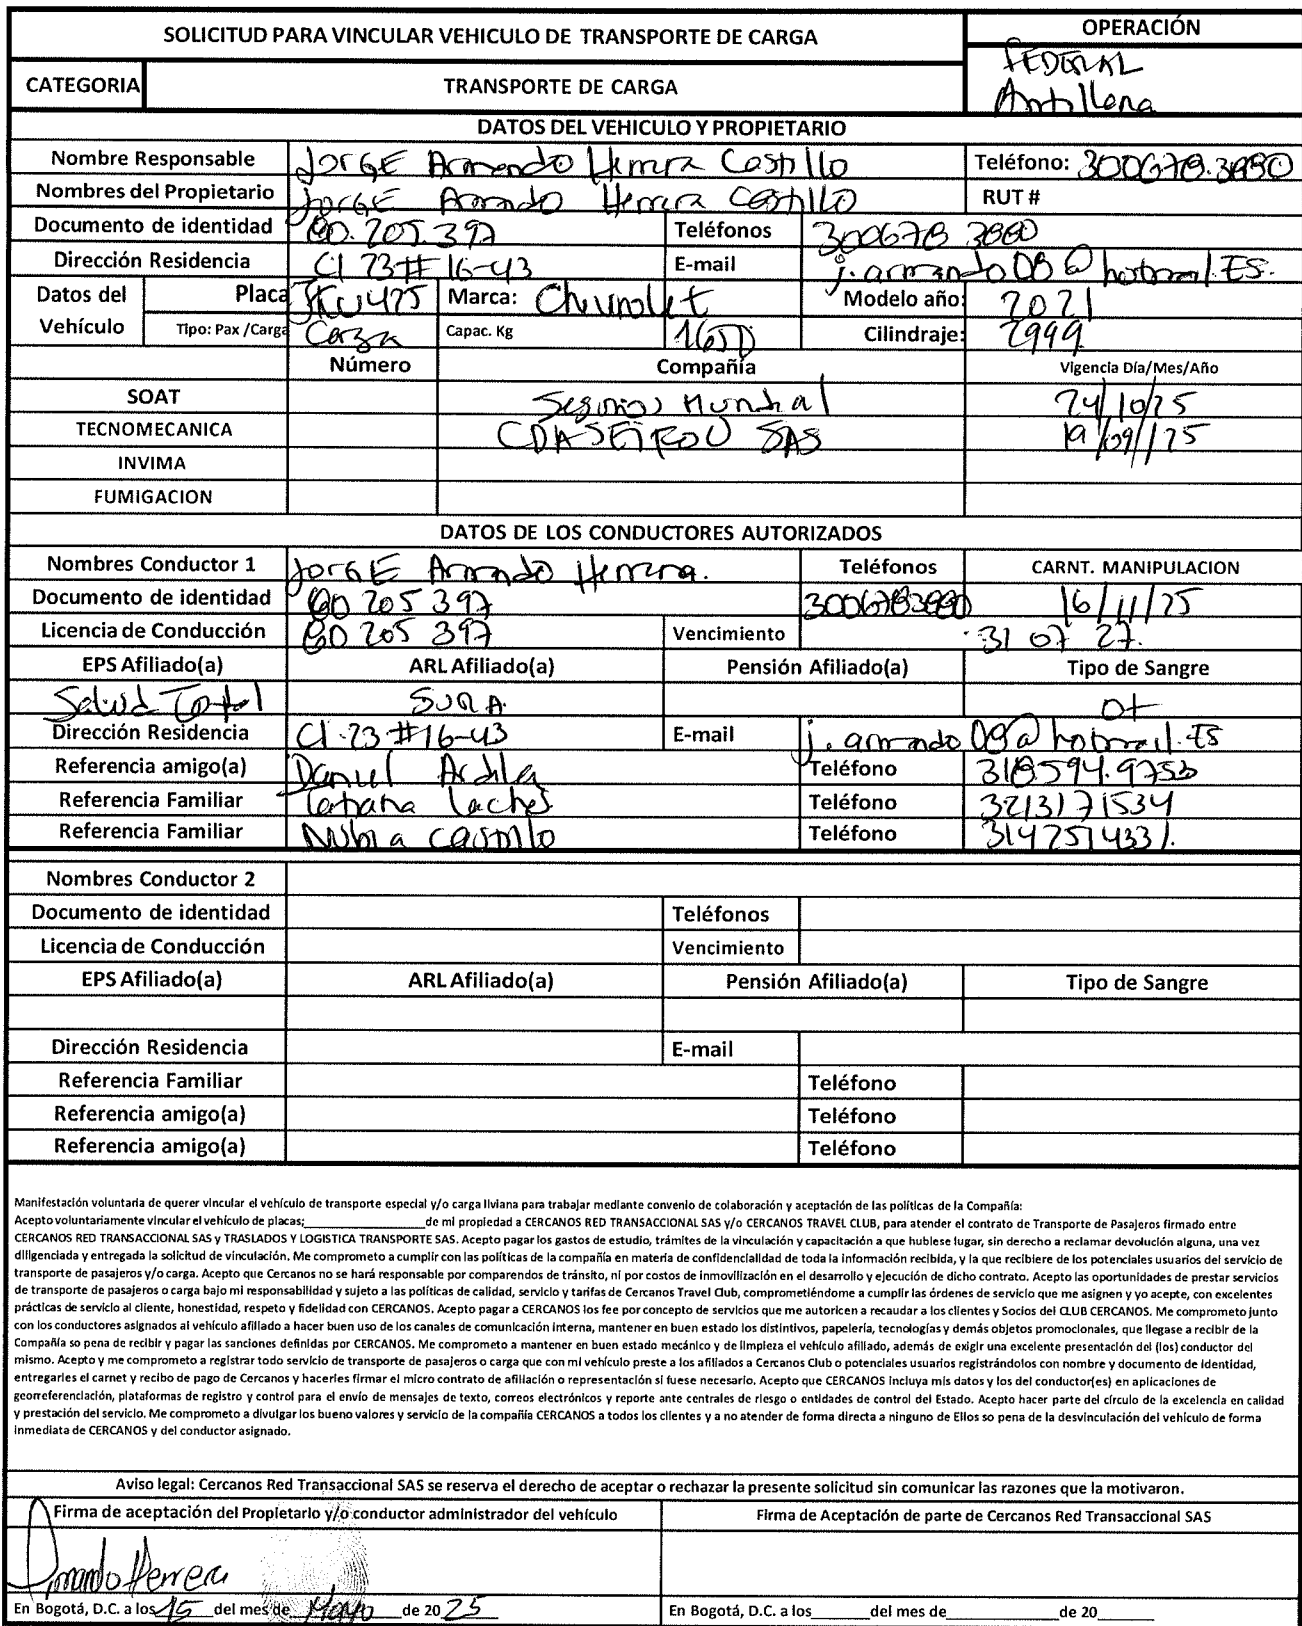 SOLICITUD PARA VINCULAR VEHICULO DE TRANSPORTE DE CARGA
OPERACIÓN
FEDERAL
Antillana
CATEGORIA TRANSPORTE DE CARGA
DATOS DEL VEHICULO Y PROPIETARIO
Nombre Responsable Jorge Armando Herrera Castillo Teléfono: 300678.3880
Nombres del Propietario Jorge Armando Herrera Castillo RUT #
Documento de identidad 80.205.397 Teléfonos 300678 3880
Dirección Residencia Cl 23 # 16-43 E-mail j.armando08@hotmail.ES.
Datos del Vehículo Placa JKU475 Marca: Chevrolet Modelo año: 2021
Tipo: Pax /Carga Carga Capac. Kg 1650 Cilindraje: 2999
Número Compañía Vigencia Día/Mes/Año
SOAT Seguros Mundial 24/10/25
TECNOMECANICA CDA SAS 19/09/25
INVIMA
FUMIGACION
DATOS DE LOS CONDUCTORES AUTORIZADOS
Nombres Conductor 1 Jorge Armando Herrera. Teléfonos CARNT. MANIPULACION
Documento de identidad 80 205 397 3006783880 16/11/25
Licencia de Conducción 80 205 397 Vencimiento 31 07 27.
EPS Afiliado(a) ARL Afiliado(a) Pensión Afiliado(a) Tipo de Sangre
Salud Total SURA. O+
Dirección Residencia Cl. 23 # 16-43 E-mail j.armando08@hotmail.ES
Referencia amigo(a) Daniel Ardila Teléfono 318594.9753
Referencia Familiar Tatiana Laches Teléfono 3213171534
Referencia Familiar Nubia Castillo Teléfono 3147514331.
Nombres Conductor 2
Documento de identidad Teléfonos
Licencia de Conducción Vencimiento
EPS Afiliado(a) ARL Afiliado(a) Pensión Afiliado(a) Tipo de Sangre
Dirección Residencia E-mail
Referencia Familiar Teléfono
Referencia amigo(a) Teléfono
Referencia amigo(a) Teléfono
Manifestación voluntaria de querer vincular el vehículo de transporte especial y/o carga liviana para trabajar mediante convenio de colaboración y aceptación de las políticas de la Compañía:
Acepto voluntariamente vincular el vehículo de placas;__________________de mi propiedad a CERCANOS RED TRANSACCIONAL SAS y/o CERCANOS TRAVEL CLUB, para atender el contrato de Transporte de Pasajeros firmado entre
CERCANOS RED TRANSACCIONAL SAS y TRASLADOS Y LOGISTICA TRANSPORTE SAS. Acepto pagar los gastos de estudio, trámites de la vinculación y capacitación a que hubiese lugar, sin derecho a reclamar devolución alguna, una vez
diligenciada y entregada la solicitud de vinculación. Me comprometo a cumplir con las políticas de la compañía en materia de confidencialidad de toda la información recibida, y la que recibiere de los potenciales usuarios del servicio de
transporte de pasajeros y/o carga. Acepto que Cercanos no se hará responsable por comparendos de tránsito, ni por costos de inmovilización en el desarrollo y ejecución de dicho contrato. Acepto las oportunidades de prestar servicios
de transporte de pasajeros o carga bajo mi responsabilidad y sujeto a las políticas de calidad, servicio y tarifas de Cercanos Travel Club, comprometiéndome a cumplir las órdenes de servicio que me asignen y yo acepte, con excelentes
prácticas de servicio al cliente, honestidad, respeto y fidelidad con CERCANOS. Acepto pagar a CERCANOS los fee por concepto de servicios que me autoricen a recaudar a los clientes y Socios del CLUB CERCANOS. Me comprometo junto
con los conductores asignados al vehículo afiliado a hacer buen uso de los canales de comunicación interna, mantener en buen estado los distintivos, papelería, tecnologías y demás objetos promocionales, que llegase a recibir de la
Compañía so pena de recibir y pagar las sanciones definidas por CERCANOS. Me comprometo a mantener en buen estado mecánico y de limpieza el vehículo afiliado, además de exigir una excelente presentación del (los) conductor del
mismo. Acepto y me comprometo a registrar todo servicio de transporte de pasajeros o carga que con mi vehículo preste a los afiliados a Cercanos Club o potenciales usuarios registrándolos con nombre y documento de identidad,
entregarles el carnet y recibo de pago de Cercanos y hacerles firmar el micro contrato de afiliación o representación si fuese necesario. Acepto que CERCANOS incluya mis datos y los del conductor(es) en aplicaciones de
georreferenciación, plataformas de registro y control para el envío de mensajes de texto, correos electrónicos y reporte ante centrales de riesgo o entidades de control del Estado. Acepto hacer parte del círculo de la excelencia en calidad
y prestación del servicio. Me comprometo a divulgar los bueno valores y servicio de la compañía CERCANOS a todos los clientes y a no atender de forma directa a ninguno de Ellos so pena de la desvinculación del vehículo de forma
inmediata de CERCANOS y del conductor asignado.
Aviso legal: Cercanos Red Transaccional SAS se reserva el derecho de aceptar o rechazar la presente solicitud sin comunicar las razones que la motivaron.
Firma de aceptación del Propietario y/o conductor administrador del vehículo Firma de Aceptación de parte de Cercanos Red Transaccional SAS
Armando Herrera
En Bogotá, D.C. a los 15 del mes de Mayo de 20 25 En Bogotá, D.C. a los_______del mes de____________de 20______